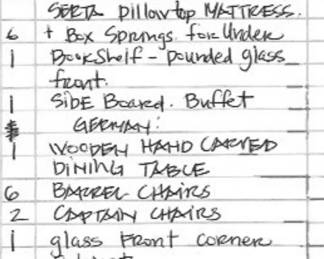 SERTA Pillowtop MATTRESS.
6 + Box Springs for Under
1 Bookshelf - pounded glass
front.
1 SiDE Board. Buffet
GERMAN:
1 WOODEN HAND CARVED
DINING TABLE
6 BARREL CHAIRS
2 CAPTAIN CHAIRS
1 glass Front corner